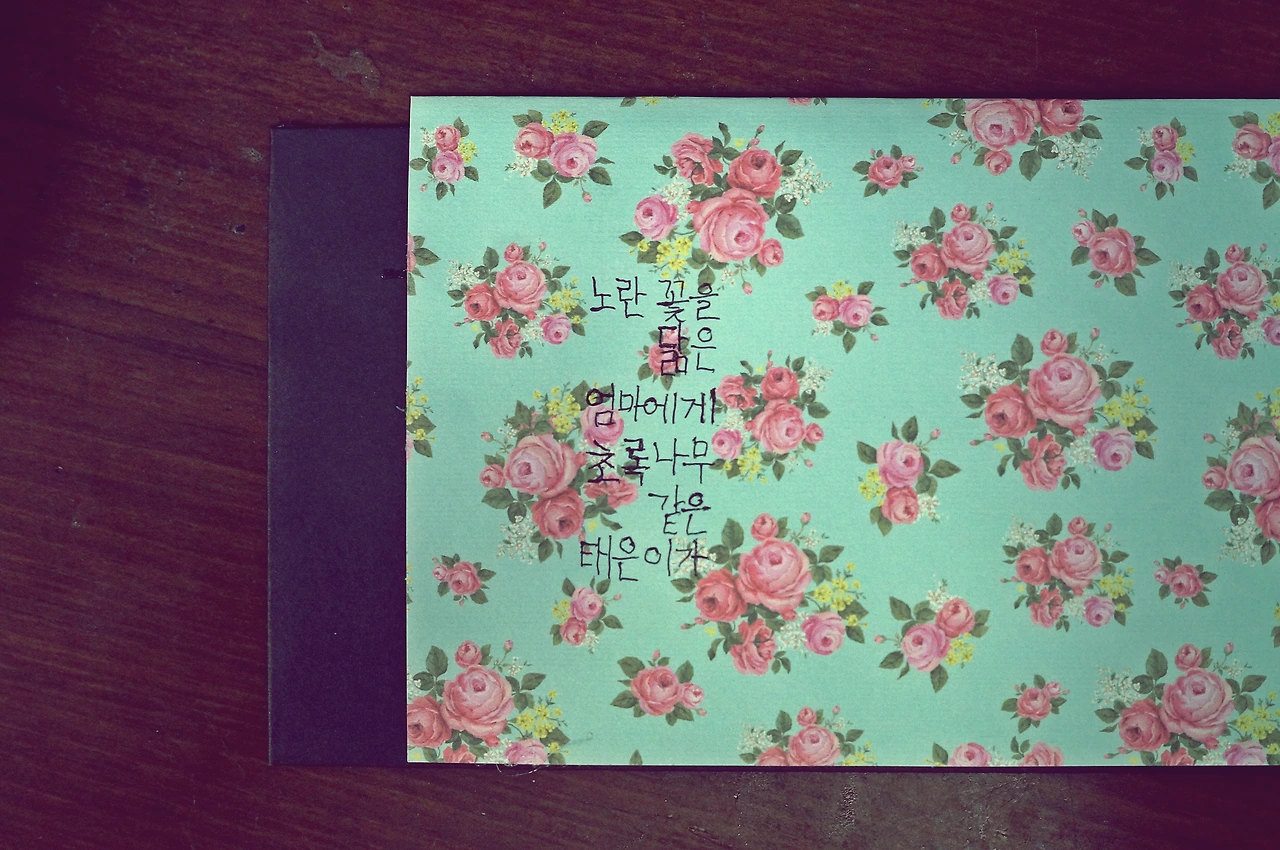 노란 꽃을
닮은
엄마에게
초록나무
같은
태은이가